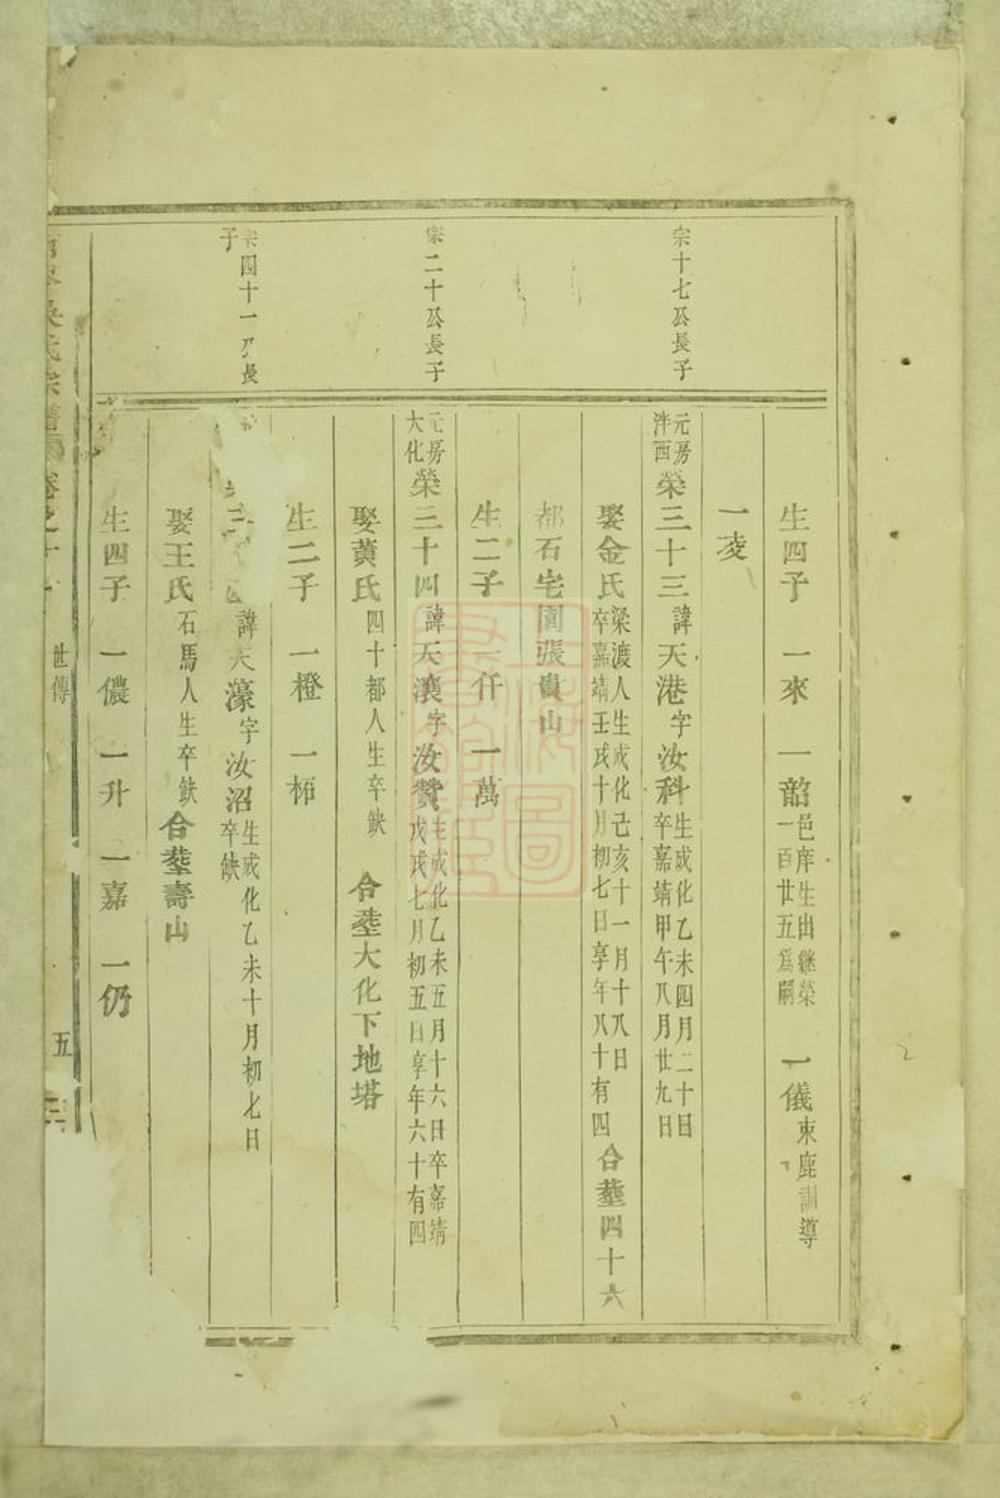 宗十七公長子
宗二十公長子
宗四十一公長
子
生四子 一來 一韶邑庠生出繼榮一百廿五爲嗣 一儀束鹿訓導
一凌
元房泮西榮三十三諱天港字汝科生成化乙未四月二十日卒嘉靖甲午八月廿九日
娶金氏梁渡人生成化己亥十一月十八日卒嘉靖壬戌十月初七日享年八十有四合塟四十六
都石宅園張貴山
生二子 一仟 一萬
元房大化榮三十四諱天漢字汝贊生成化乙未五月十六日卒嘉靖戊戌七月初五日享年六十有四
娶黃氏四十都人生卒缺 合塟大化下地塔
生二子 一橙 一栢
三 諱天濠字汝沼生成化乙未十月初七日卒缺
娶王氏石馬人生卒缺合塟壽山
生四子 一儂 一升 一嘉 一仍
吳氏宗譜 卷之十 世傳 五